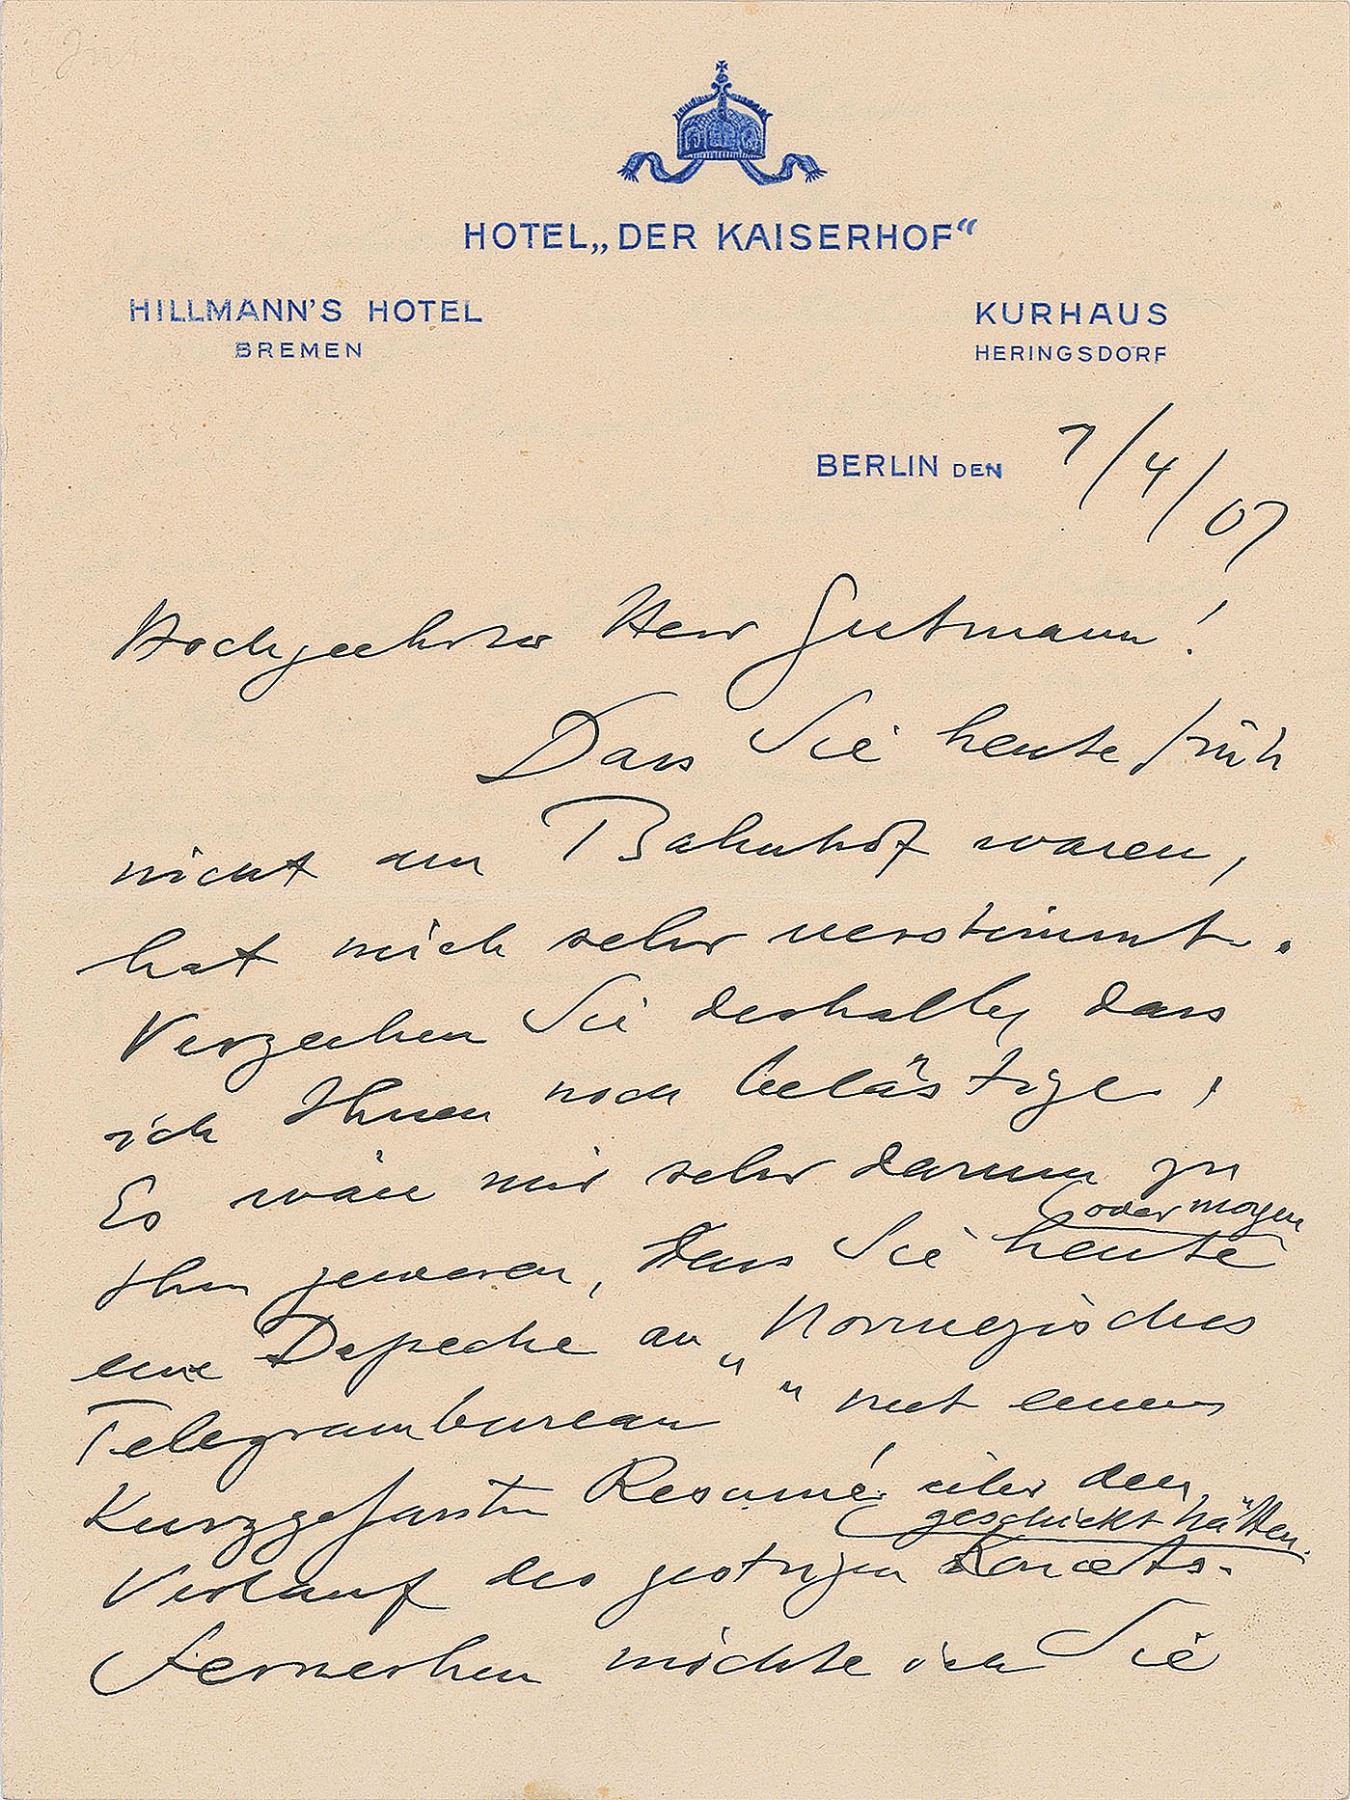 HOTEL „DER KAISERHOF“
HILLMANN'S HOTEL
BREMEN
KURHAUS
HERINGSDORF
BERLIN DEN 7/4/07
Hochgeehrter Herr Gutmann!
Dass Sie heute früh
nicht am Bahnhof waren,
hat mich sehr verstimmt.
Verzeihen Sie deshalb, dass
ich Ihnen noch belästige,
Es wäre mir sehr darum zu
oder morgen
thun gewesen, dass Sie heute
eine Depeche an „Norwegisches
Telegrambureau“ mit einem
Kurzgefassten Resumé über den
geschickt hätten.
Verlauf des gestrigen Koncerts.
Fernerhin möchte ich Sie